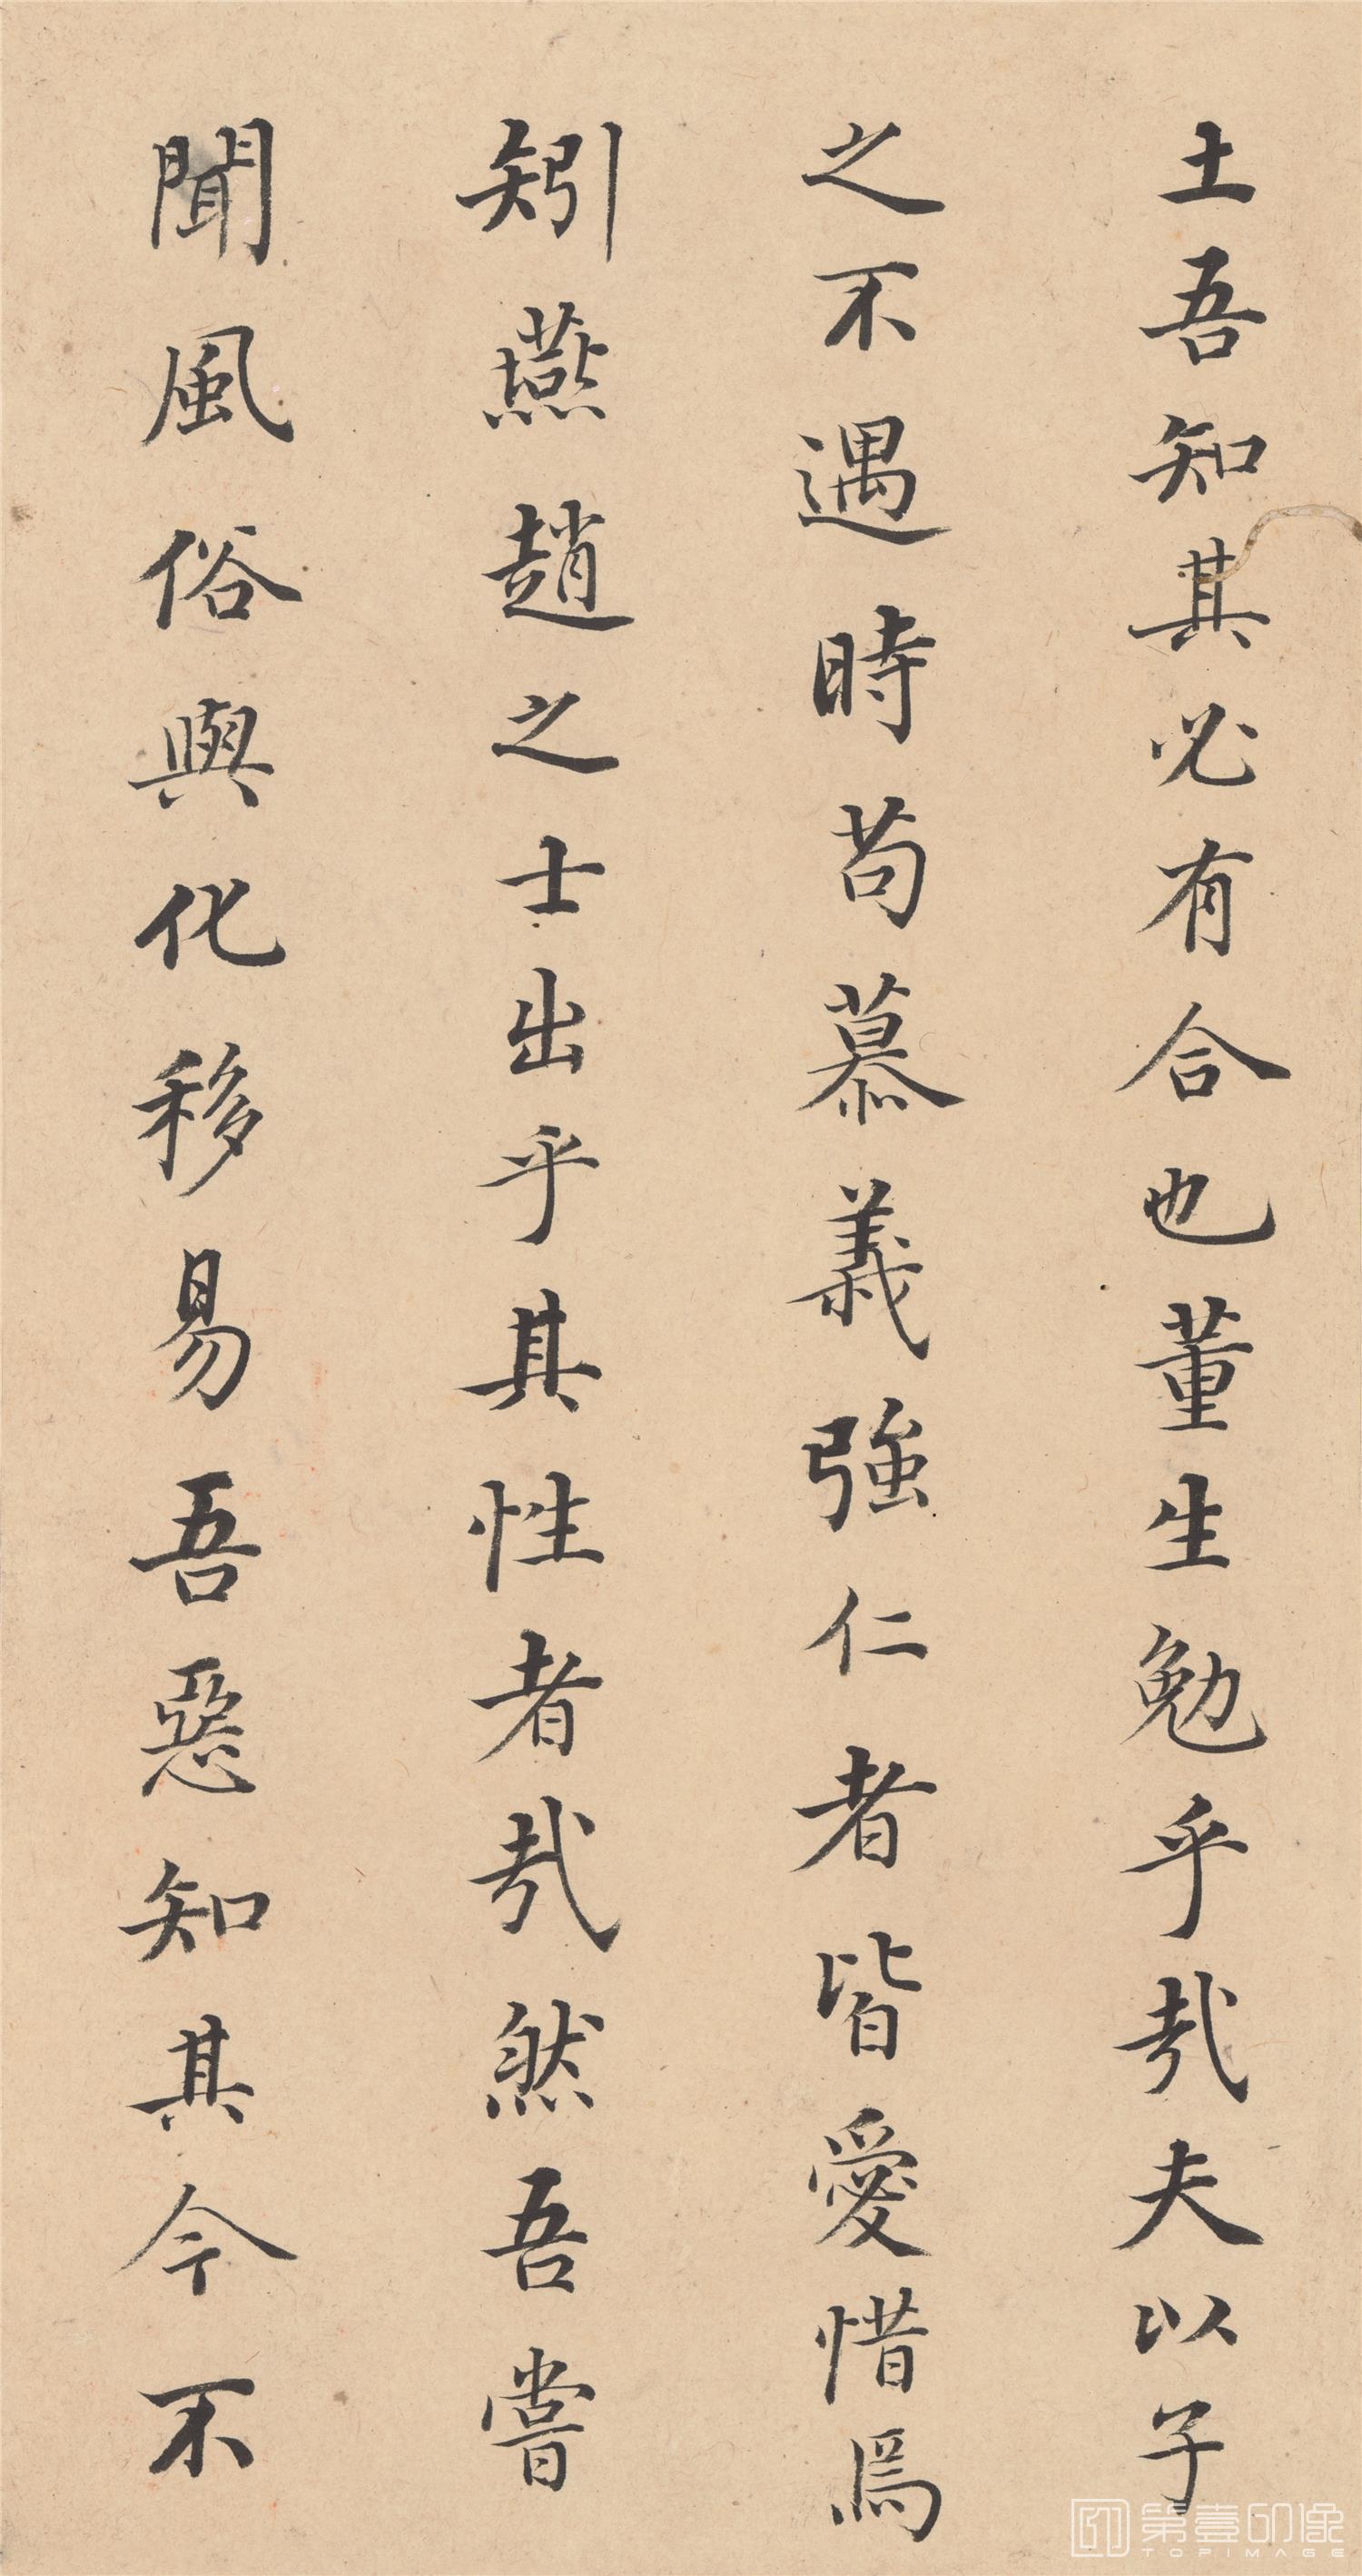 土吾知其必有合也董生勉乎哉夫以子
之不遇時苟慕義強仁者皆愛惜焉
矧燕趙之士出乎其性者哉然吾嘗
聞風俗與化移易吾惡知其今不
第壹印像
TOPIMAGE